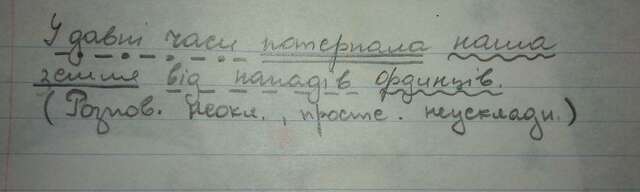 У давні часи потерпала наша
земля від нападів ординців.
(Розпов. неокл., просте. неускладн.)